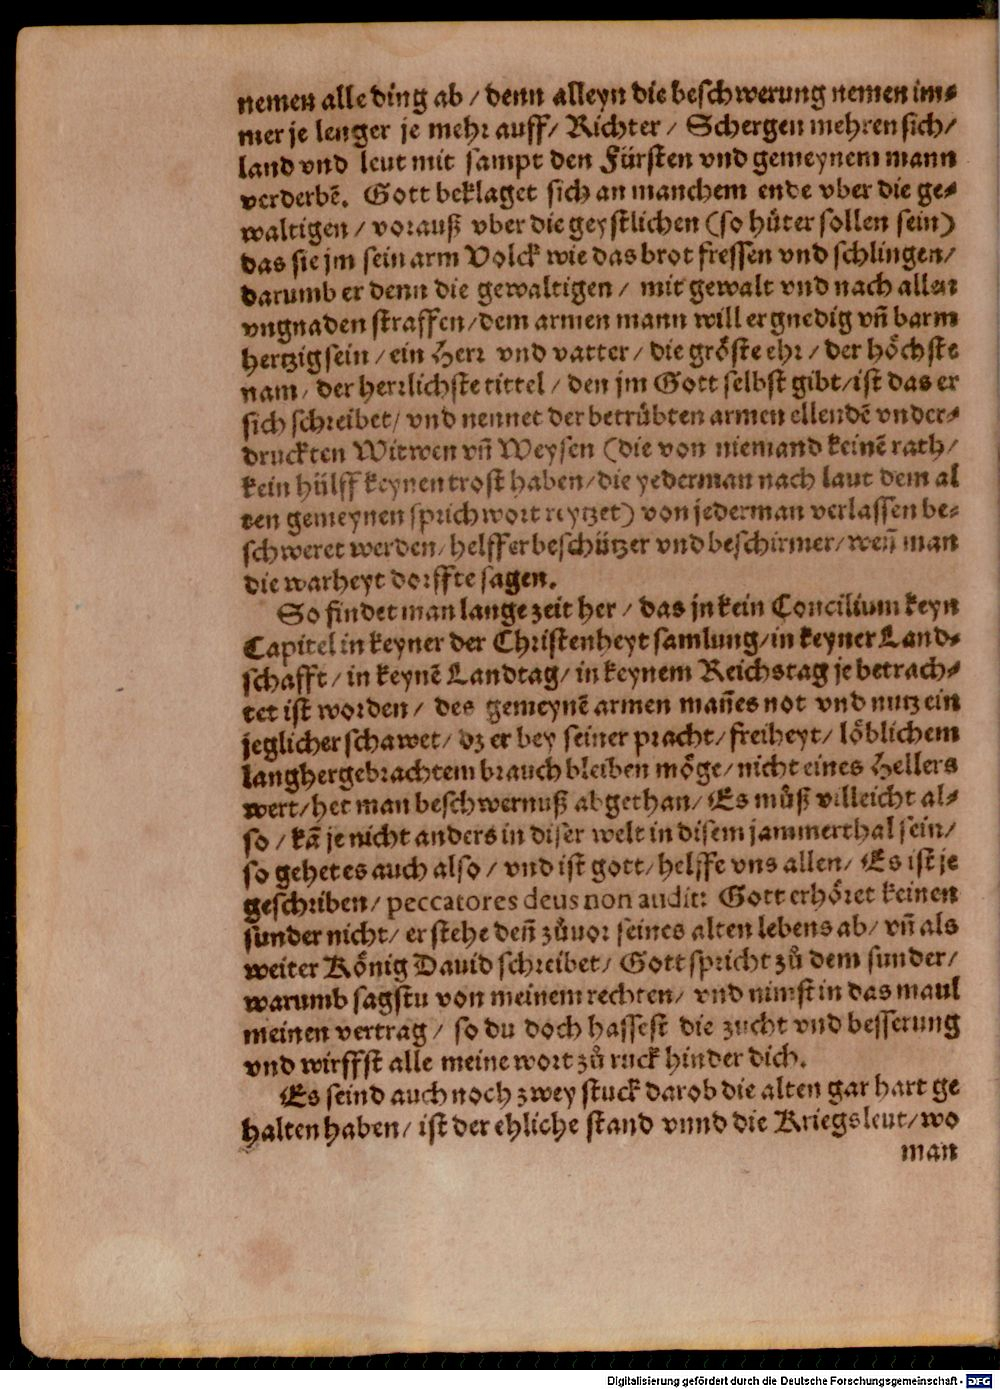 nemen alle ding ab / denn alleyn die beschwerung nemen im⸗
mer je lenger je mehr auff/ Richter / Schergen mehren sich/
land vnd leut mit sampt den Fürsten vnd gemeynem mann
verderbẽ. Gott beklaget sich an manchem ende vber die ge⸗
waltigen / vorauß vber die geystlichen (so hůter sollen sein)
das sie jm sein arm Volck wie das brot fressen vnd schlingen/
darumb er denn die gewaltigen / mit gewalt vnd nach allen
vngnaden straffen/dem armen mann will er gnedig vñ barm
hertzig sein / ein Herr vnd vatter / die gröste ehr / der höchste
nam / der herrlichste tittel / den jm Gott selbst gibt/ist das er
sich schreibet/ vnd nennet der betrůbten armen ellendẽ vnder⸗
druckten Witwen vñ Weysen (die von niemand keinẽ rath/
kein hülff keynen trost haben/die yederman nach laut dem al
ten gemeynen sprichwort reytzet) von jederman verlassen be⸗
schweret werden/ helffer beschützer vnd beschirmer/weñ man
die warheyt dorffte sagen.
So findet man lange zeit her / das jn kein Concilium keyn
Capitel in keyner der Christenheyt samlung/in keyner Land⸗
schafft / in keynẽ Landtag/ in keynem Reichstag je betrach⸗
tet ist worden / des gemeynẽ armen mañes not vnd nutz ein
jeglicher schawet/ dz er bey seiner pracht/ freiheyt/ löblichem
langhergebrachtem brauch bleiben möge/ nicht eines Hellers
wert/het man beschwernuß abgethan/ Es můß villeicht al⸗
so / kã je nicht anders in diser welt in disem jammerthal sein/
so gehet es auch also / vnd ist gott/ helffe vns allen/ Es ist je
geschriben/ peccatores deus non audit: Gott erhöret keinen
sunder nicht/ er stehe deñ zůuor seines alten lebens ab/ vñ als
weiter König Dauid schreibet/ Gott spricht zů dem sunder/
warumb sagstu von meinem rechten/ vnd nimst in das maul
meinen vertrag / so du doch hassest die zucht vnd besserung
vnd wirffst alle meine wort zů ruck hinder dich.
Es seind auch noch zwey stuck darob die alten gar hart ge
halten haben/ ist der ehliche stand vnnd die Kriegsleut/wo
man
Digitalisierung gefördert durch die Deutsche Forschungsgemeinschaft - DFG